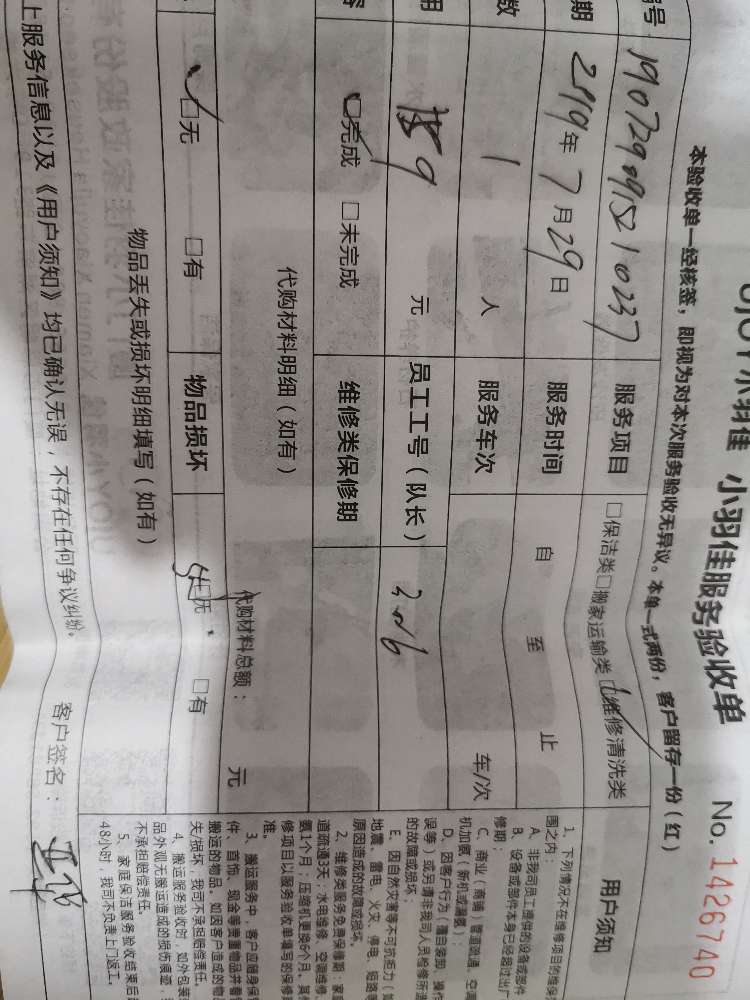 小羽佳 小羽佳服务验收单 No. 1426740
本验收单一经核签，即视为对本次服务验收无异议。本单一式两份，客户留存一份（红）
号 服务项目 □保洁类□搬家运输类□维修清洗类 用户须知
期 2019年7月29日 服务时间 自 至 止
数 1 人 服务车次 车/次
用 元 员工工号（队长）
□完成 □未完成 维修类保修期
代购材料明细（如有） 代购材料总额： 元
□无 □有 物品损坏 □无 □有
物品丢失或损坏明细填写（如有）
上服务信息以及《用户须知》均已确认无误，不存在任何争议纠纷。 客户签名：
1、下列情况不在维修项目的维保
围之内：
A、非我司员工提供的设备或部件
B、设备或部件本身已经超过出厂
修期；
C、商业／商铺／管道疏通、空调
机加氨（新机或漏氨）；
D、因客户行为（擅自装卸、操作
误等）或另请非我司人员检修所造
的故障或损坏；
E、因自然灾害等不可抗拒力（如
地震、雷电、火灾、停电、短路等
原因造成的故障或损坏。
2、维修类服务免费保修期：家庭
道疏通3天；水电维修、空调维修
氨1个月；压缩机更换6个月。其他
修项目以服务验收单填写的保修期
准。
3、搬运服务中，客户应随身保
件、首饰、现金等贵重物品并看
搬运的物品。如因客户造成的物
失／损坏，我司不承担赔偿责任。
4、搬运服务验收时，如外包装
品外观无搬运造成的损伤痕迹，
不承担赔偿责任。
5、家庭保洁服务验收结束后超
48小时，我司不负责上门返工。